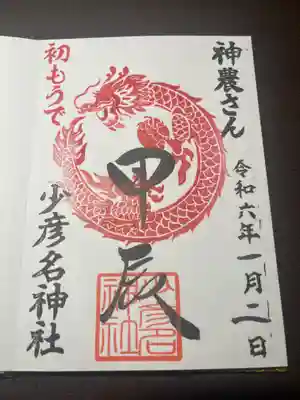 神農さん
令和六年一月二日
甲辰
初もうで
少彦名神社
少彦名
神社